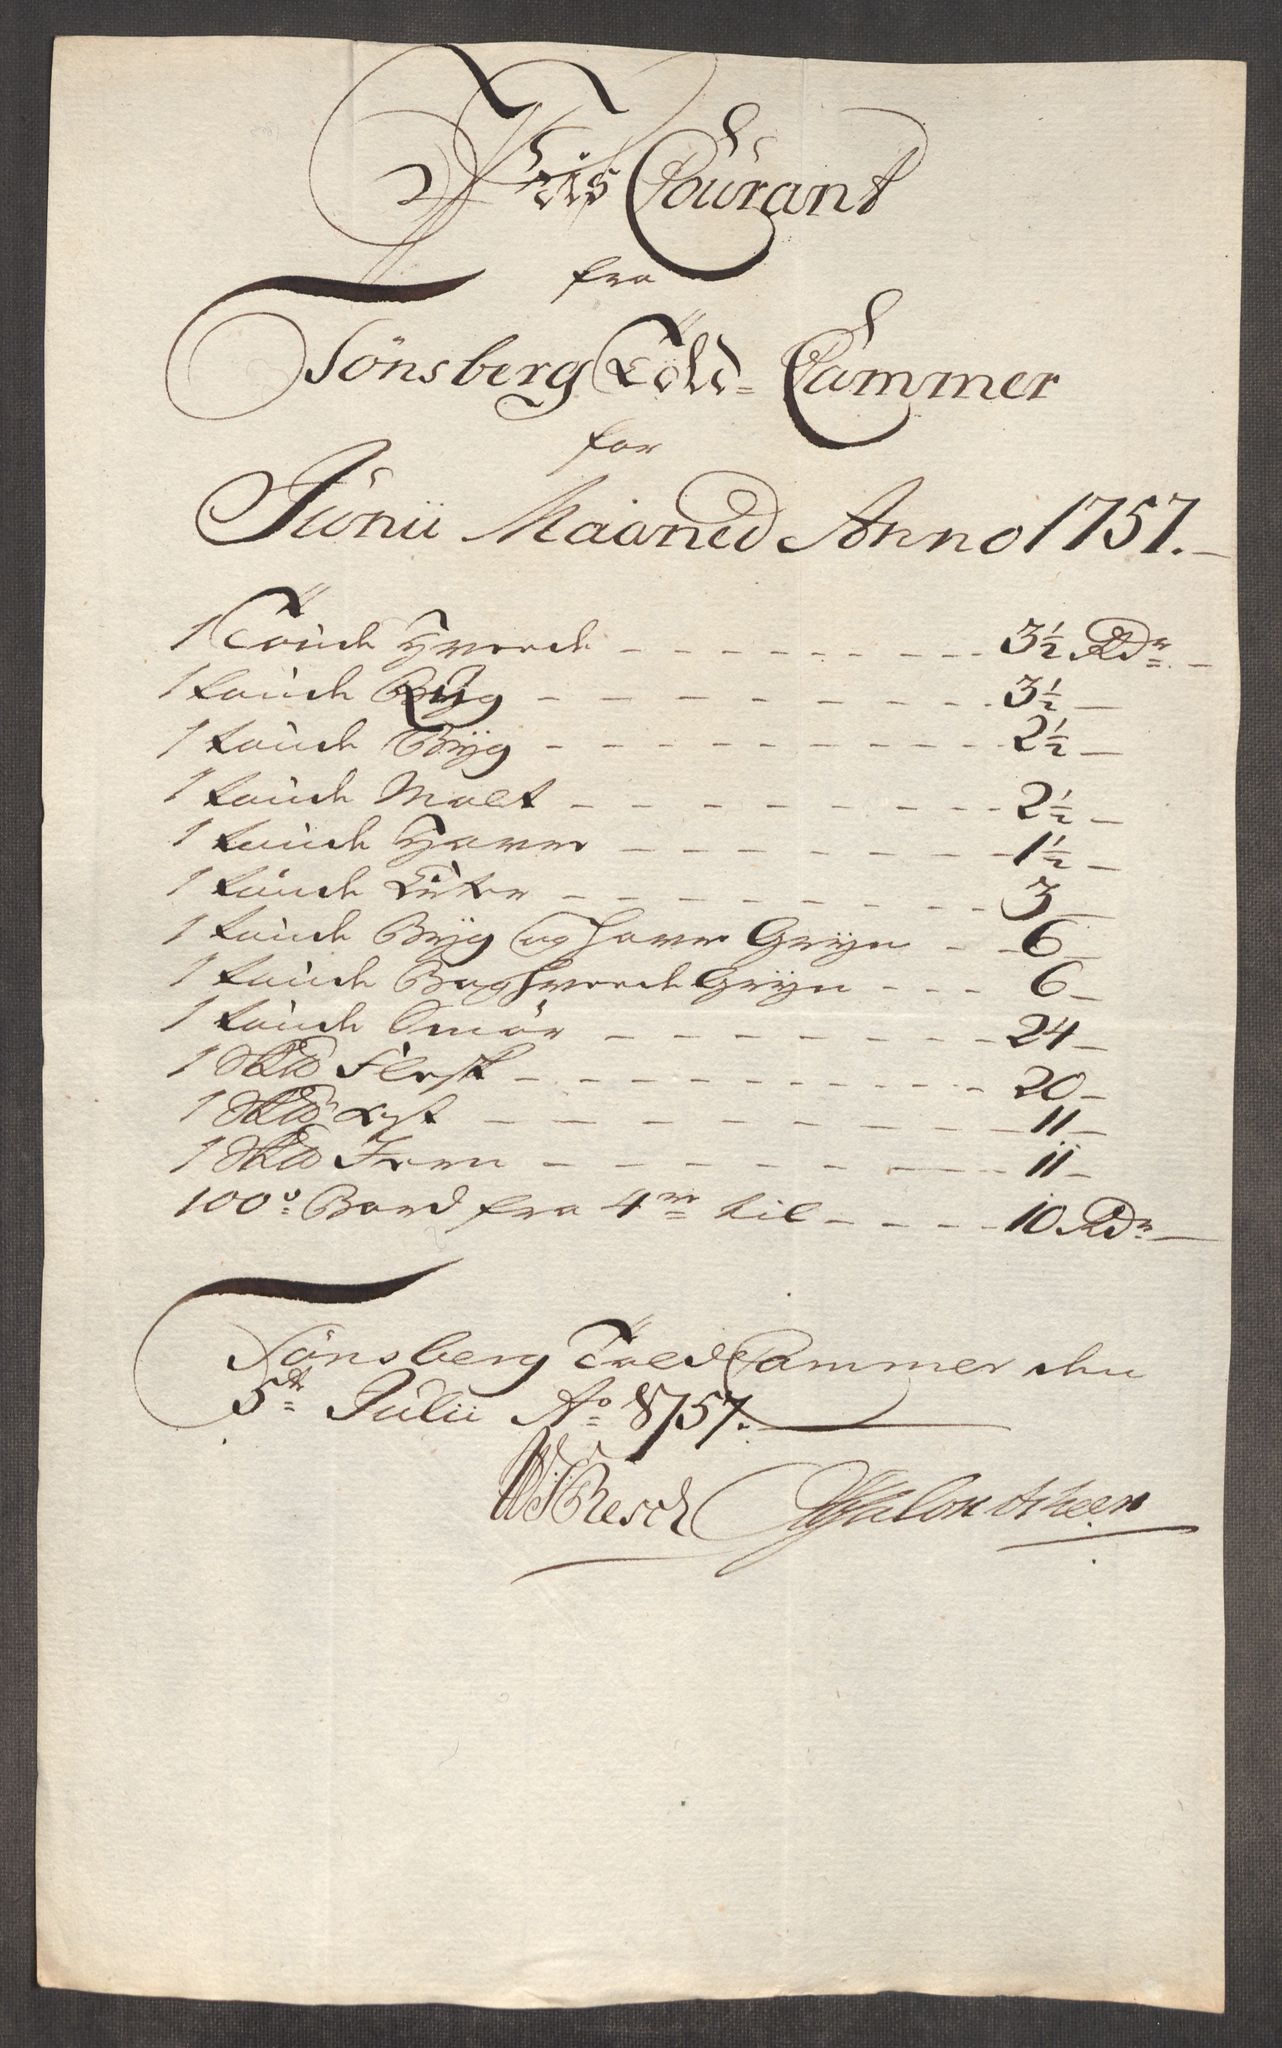 Priis Courant
fra
Tönsberg Told-Cammer
for
Junii Maaned Anno 1757.
1 Tönde Hvede 3½ Rdr
1 tönde Rug 3½
1 tönde Byg 2½
1 tönde Malt 2½
1 tönde Havre 1½
1 tönde Erter 3
1 tönde Byg og Havre Gryn 6
1 tönde Boghvede Gryn 6
1 tönde Smör 24
1 Skd Flesk 20
1 Skd Ost 11
1 Skd Jern 11
100de Bord fra 4re til 10 Rdr
Tönsberg Told Cammer den
5te Julii Ao 1757.
Resch